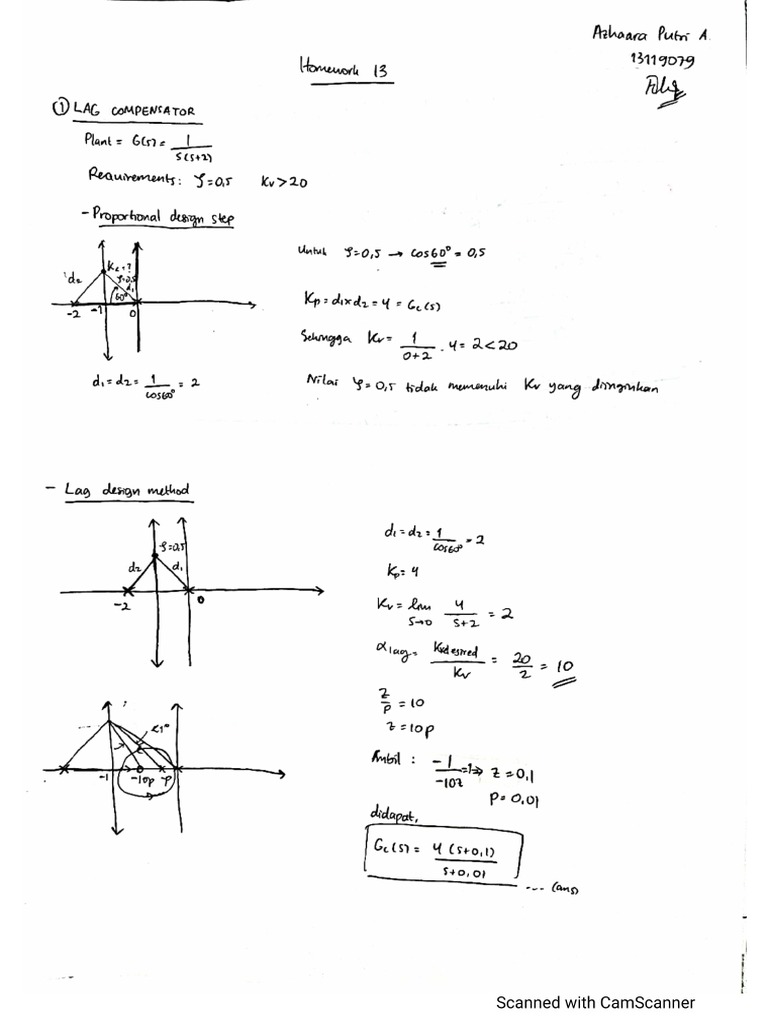 Azhaara Putri A.
13119079
Homework 13
① LAG COMPENSATOR
Plant = G(s) = 1 / s(s+2)
Requirements: ζ=0,5 Kv>20
- Proportional design step
Kc=?
d2
ζ=0,5
d1
60°
-2 -1 0
d1 = d2 = 1 / cos60° = 2
Untuk ζ=0,5 → cos60° = 0,5
Kp = d1xd2 = 4 = Gc(s)
Sehingga Kv = 1 / 0+2 . 4 = 2 < 20
Nilai ζ=0,5 tidak memenuhi Kv yang diinginkan
- Lag design method
ζ=0,5
d2 d1
-2 0
d1 = d2 = 1 / cos60° = 2
Kp = 4
Kv = lim s→0 4 / s+2 = 2
αlag = Kvdesired / Kv = 20 / 2 = 10
z / p = 10
z = 10p
<1°
-1 -10p -p
Ambil : -1 / -10z =1 → z = 0,1
p = 0,01
didapat,
Gc(s) = 4 (s+0,1) / s+0,01
--- (ans)
Scanned with CamScanner